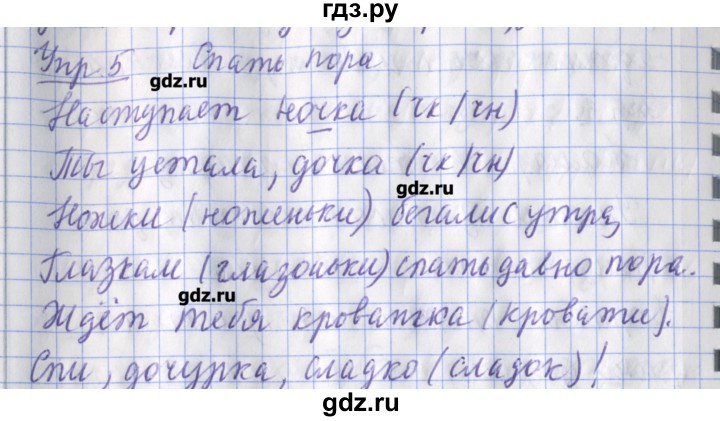 гдз.ру
Упр. 5 Спать пора
gdz.ru
Наступает ночка (чк/чн)
Ты устала, дочка (чк/чн)
gdz.ru
Ножки (ноженьки) бегали с утра,
Глазкам (глазоньки) спать давно пора.
gdz.ru
Ждёт тебя кроватка (кровати).
Спи, дочурка, сладко (сладок)!
gdz.ru